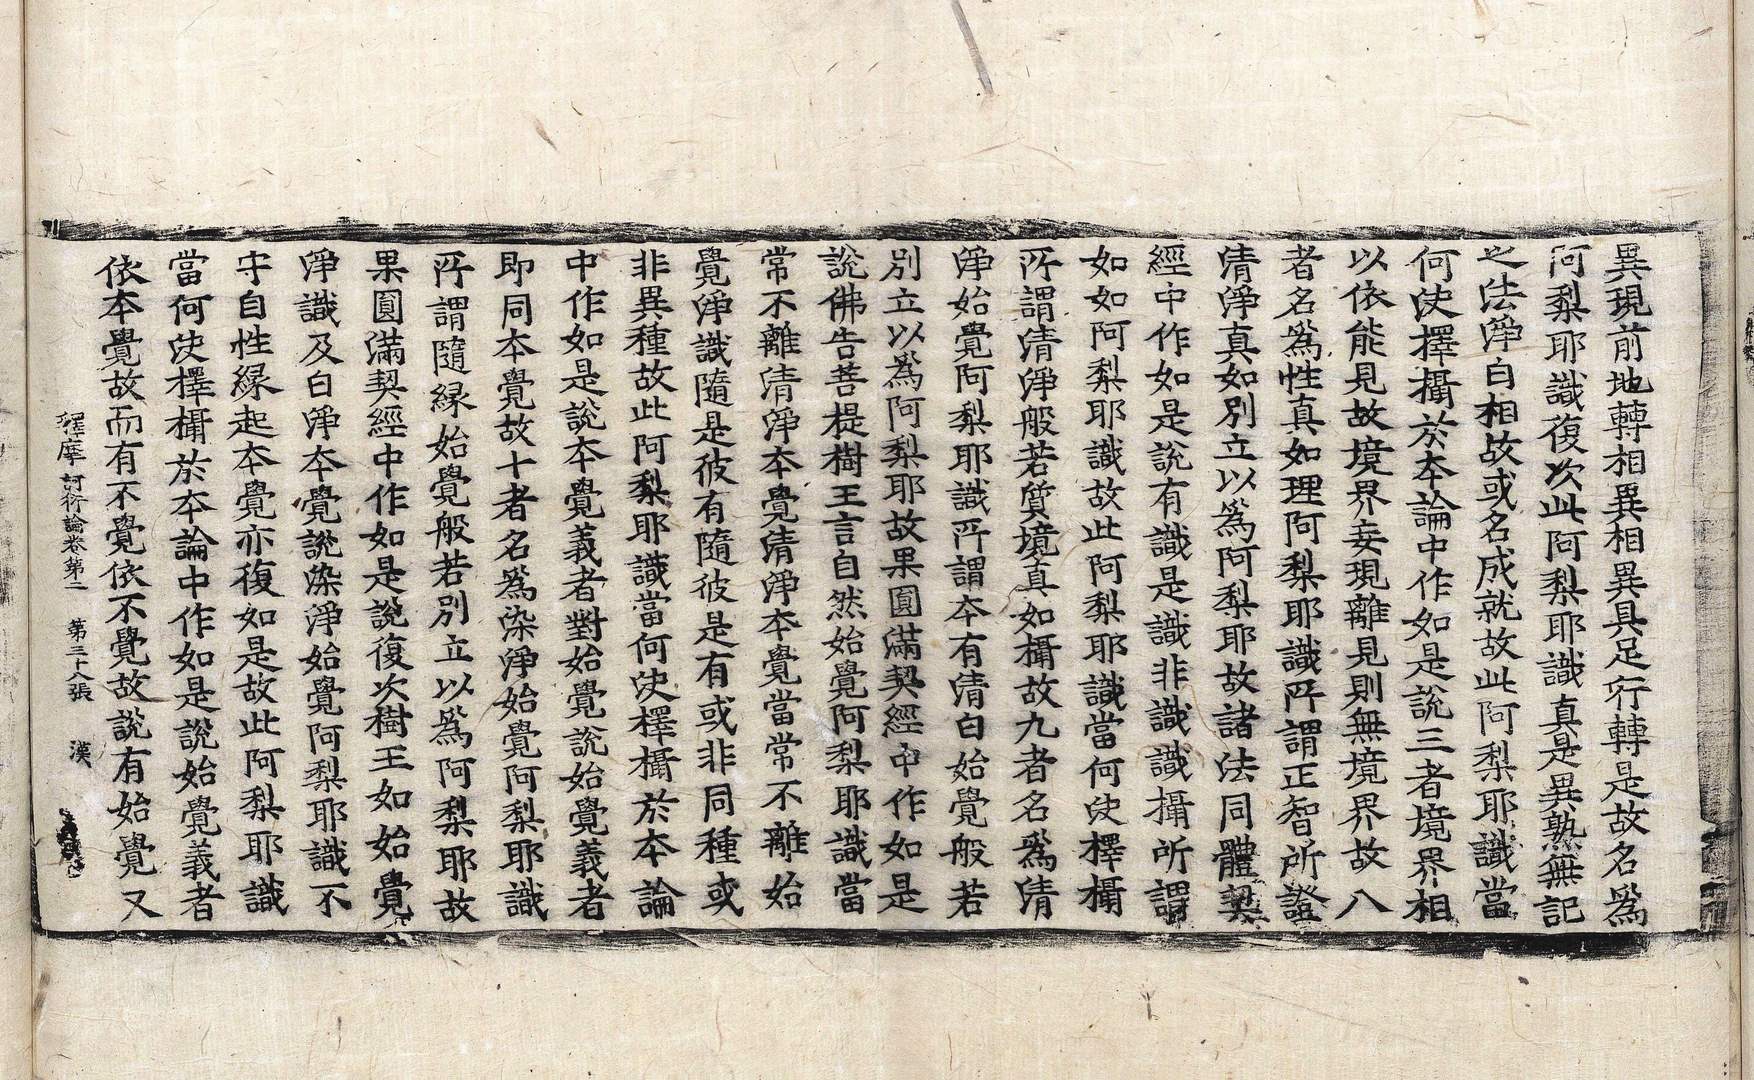 異現前地轉相異相異具足行轉是故名爲
阿梨耶識復次此阿梨耶識真是異熟無記
之法淨白相故或名成就故此阿梨耶識當
何決擇攝於本論中作如是說三者境界相
以依能見故境界妄現離見則無境界故八
者名爲性真如理阿梨耶識所謂正智所證
清淨真如別立以爲阿梨耶故諸法同體契
經中作如是說有識是識非識識攝所謂
如如阿梨耶識故此阿梨耶識當何決擇攝
所謂清淨般若質境真如攝故九者名爲清
淨始覺阿梨耶識所謂本有清白始覺般若
別立以爲阿梨耶故果圓滿契經中作如是
說佛告菩提樹王言自然始覺阿梨耶識當
常不離清淨本覺清淨本覺當常不離始
覺淨識隨是彼有隨彼是有或非同種或
非異種故此阿梨耶識當何決擇攝於本論
中作如是說本覺義者對始覺說始覺義者
即同本覺故十者名爲染淨始覺阿梨耶識
所謂隨緣始覺般若別立以爲阿梨耶故
果圓滿契經中作如是說復次樹王如始覺
淨識及白淨本覺說染淨始覺阿梨耶識不
守自性緣起本覺亦復如是故此阿梨耶識
當何決擇攝於本論中作如是說始覺義者
依本覺故而有不覺依不覺故說有始覺又
釋摩訶衍論卷第二 第三十八張 漢